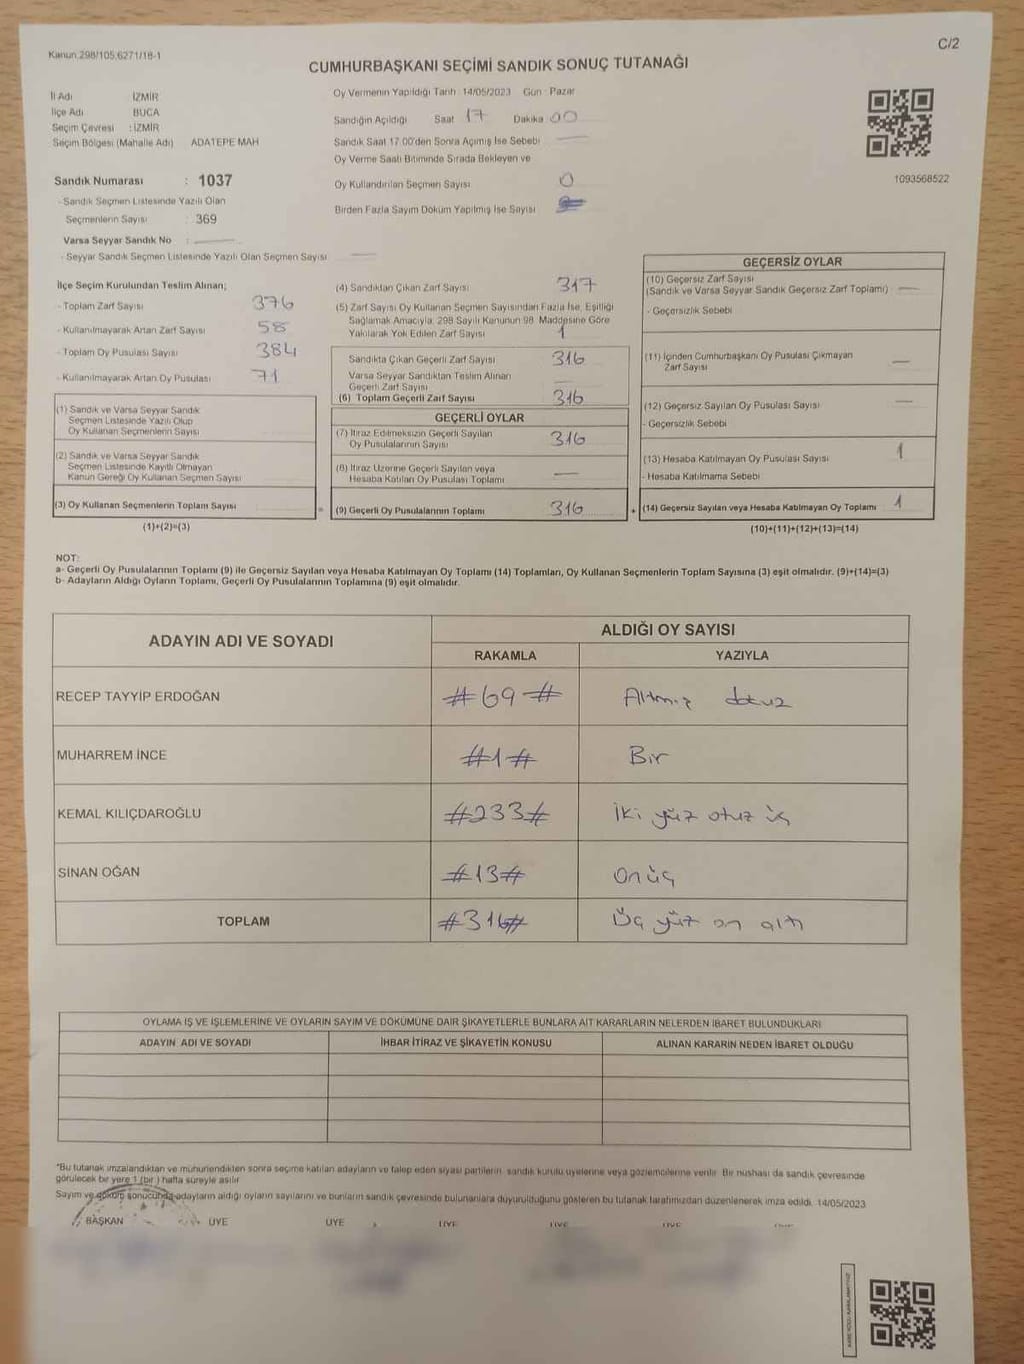 C/2
Kanun 298/105,6271/18-1
CUMHURBAŞKANI SEÇİMİ SANDIK SONUÇ TUTANAĞI
İl Adı İZMİR
İlçe Adı BUCA
Seçim Çevresi : İZMİR
Seçim Bölgesi (Mahalle Adı) ADATEPE MAH
Sandık Numarası : 1037
- Sandık Seçmen Listesinde Yazılı Olan
Seçmenlerin Sayısı : 369
Varsa Seyyar Sandık No :
- Seyyar Sandık Seçmen Listesinde Yazılı Olan Seçmen Sayısı
Oy Vermenin Yapıldığı Tarih : 14/05/2023 Gün : Pazar
Sandığın Açıldığı Saat 17 Dakika 00
Sandık Saat 17.00'den Sonra Açımış İse Sebebi
Oy Verme Saati Bitiminde Sırada Bekleyen ve
Oy Kullandırılan Seçmen Sayısı 0
Birden Fazla Sayım Döküm Yapılmış İse Sayısı
1093568522
İlçe Seçim Kurulundan Teslim Alınan;
- Toplam Zarf Sayısı 376
- Kullanılmayarak Artan Zarf Sayısı 58
- Toplam Oy Pusulası Sayısı 384
- Kullanılmayarak Artan Oy Pusulası 71
(1) Sandık ve Varsa Seyyar Sandık
Seçmen Listesinde Yazılı Olup
Oy Kullanan Seçmenlerin Sayısı
(2) Sandık ve Varsa Seyyar Sandık
Seçmen Listesinde Kayıtlı Olmayan
Kanun Gereği Oy Kullanan Seçmen Sayısı
(3) Oy Kullanan Seçmenlerin Toplam Sayısı
=
(1)+(2)=(3)
(4) Sandıktan Çıkan Zarf Sayısı 317
(5) Zarf Sayısı Oy Kullanan Seçmen Sayısından Fazla İse, Eşitliği
Sağlamak Amacıyla; 298 Sayılı Kanunun 98. Maddesine Göre
Yakılarak Yok Edilen Zarf Sayısı 1
Sandıkta Çıkan Geçerli Zarf Sayısı 316
Varsa Seyyar Sandıktan Teslim Alınan
Geçerli Zarf Sayısı
(6) Toplam Geçerli Zarf Sayısı 316
GEÇERLİ OYLAR
(7) İtiraz Edilmeksizin Geçerli Sayılan
Oy Pusulalarının Sayısı 316
(8) İtiraz Üzerine Geçerli Sayılan veya
Hesaba Katılan Oy Pusulası Toplamı
(9) Geçerli Oy Pusulalarının Toplamı 316
+
GEÇERSİZ OYLAR
(10) Geçersiz Zarf Sayısı
(Sandık ve Varsa Seyyar Sandık Geçersiz Zarf Toplamı)
- Geçersizlik Sebebi
(11) İçinden Cumhurbaşkanı Oy Pusulası Çıkmayan
Zarf Sayısı
(12) Geçersiz Sayılan Oy Pusulası Sayısı
- Geçersizlik Sebebi
(13) Hesaba Katılmayan Oy Pusulası Sayısı 1
- Hesaba Katılmama Sebebi
(14) Geçersiz Sayılan veya Hesaba Katılmayan Oy Toplamı 1
(10)+(11)+(12)+(13)=(14)
NOT:
a- Geçerli Oy Pusulalarının Toplamı (9) ile Geçersiz Sayılan veya Hesaba Katılmayan Oy Toplamı (14) Toplamları, Oy Kullanan Seçmenlerin Toplam Sayısına (3) eşit olmalıdır. (9)+(14)=(3)
b- Adayların Aldığı Oyların Toplamı, Geçerli Oy Pusulalarının Toplamına (9) eşit olmalıdır.
ADAYIN ADI VE SOYADI ALDIĞI OY SAYISI
RAKAMLA YAZIYLA
RECEP TAYYİP ERDOĞAN #69# Altmış dokuz
MUHARREM İNCE #1# Bir
KEMAL KILIÇDAROĞLU #233# İki yüz otuz üç
SİNAN OĞAN #13# Onüç
TOPLAM #316# Üç yüz on altı
OYLAMA İŞ VE İŞLEMLERİNE VE OYLARIN SAYIM VE DÖKÜMÜNE DAİR ŞİKAYETLERLE BUNLARA AİT KARARLARIN NELERDEN İBARET BULUNDUKLARI
ADAYIN ADI VE SOYADI İHBAR İTİRAZ VE ŞİKAYETİN KONUSU ALINAN KARARIN NEDEN İBARET OLDUĞU
*Bu tutanak imzalandıktan ve mühürlendikten sonra seçime katılan adayların ve talep eden siyasi partilerin sandık kurulu üyelerine veya gözlemcilerine verilir. Bir nüshası da sandık çevresinde
görülecek bir yere 1 (bir) hafta süreyle asılır
Sayım ve döküm sonucunda adayların aldığı oyların sayılarını ve bunların sandık çevresinde bulunanlara duyurulduğunu gösteren bu tutanak tarafımızdan düzenlenerek imza edildi. 14/05/2023
BAŞKAN ÜYE ÜYE ÜYE ÜYE ÜYE